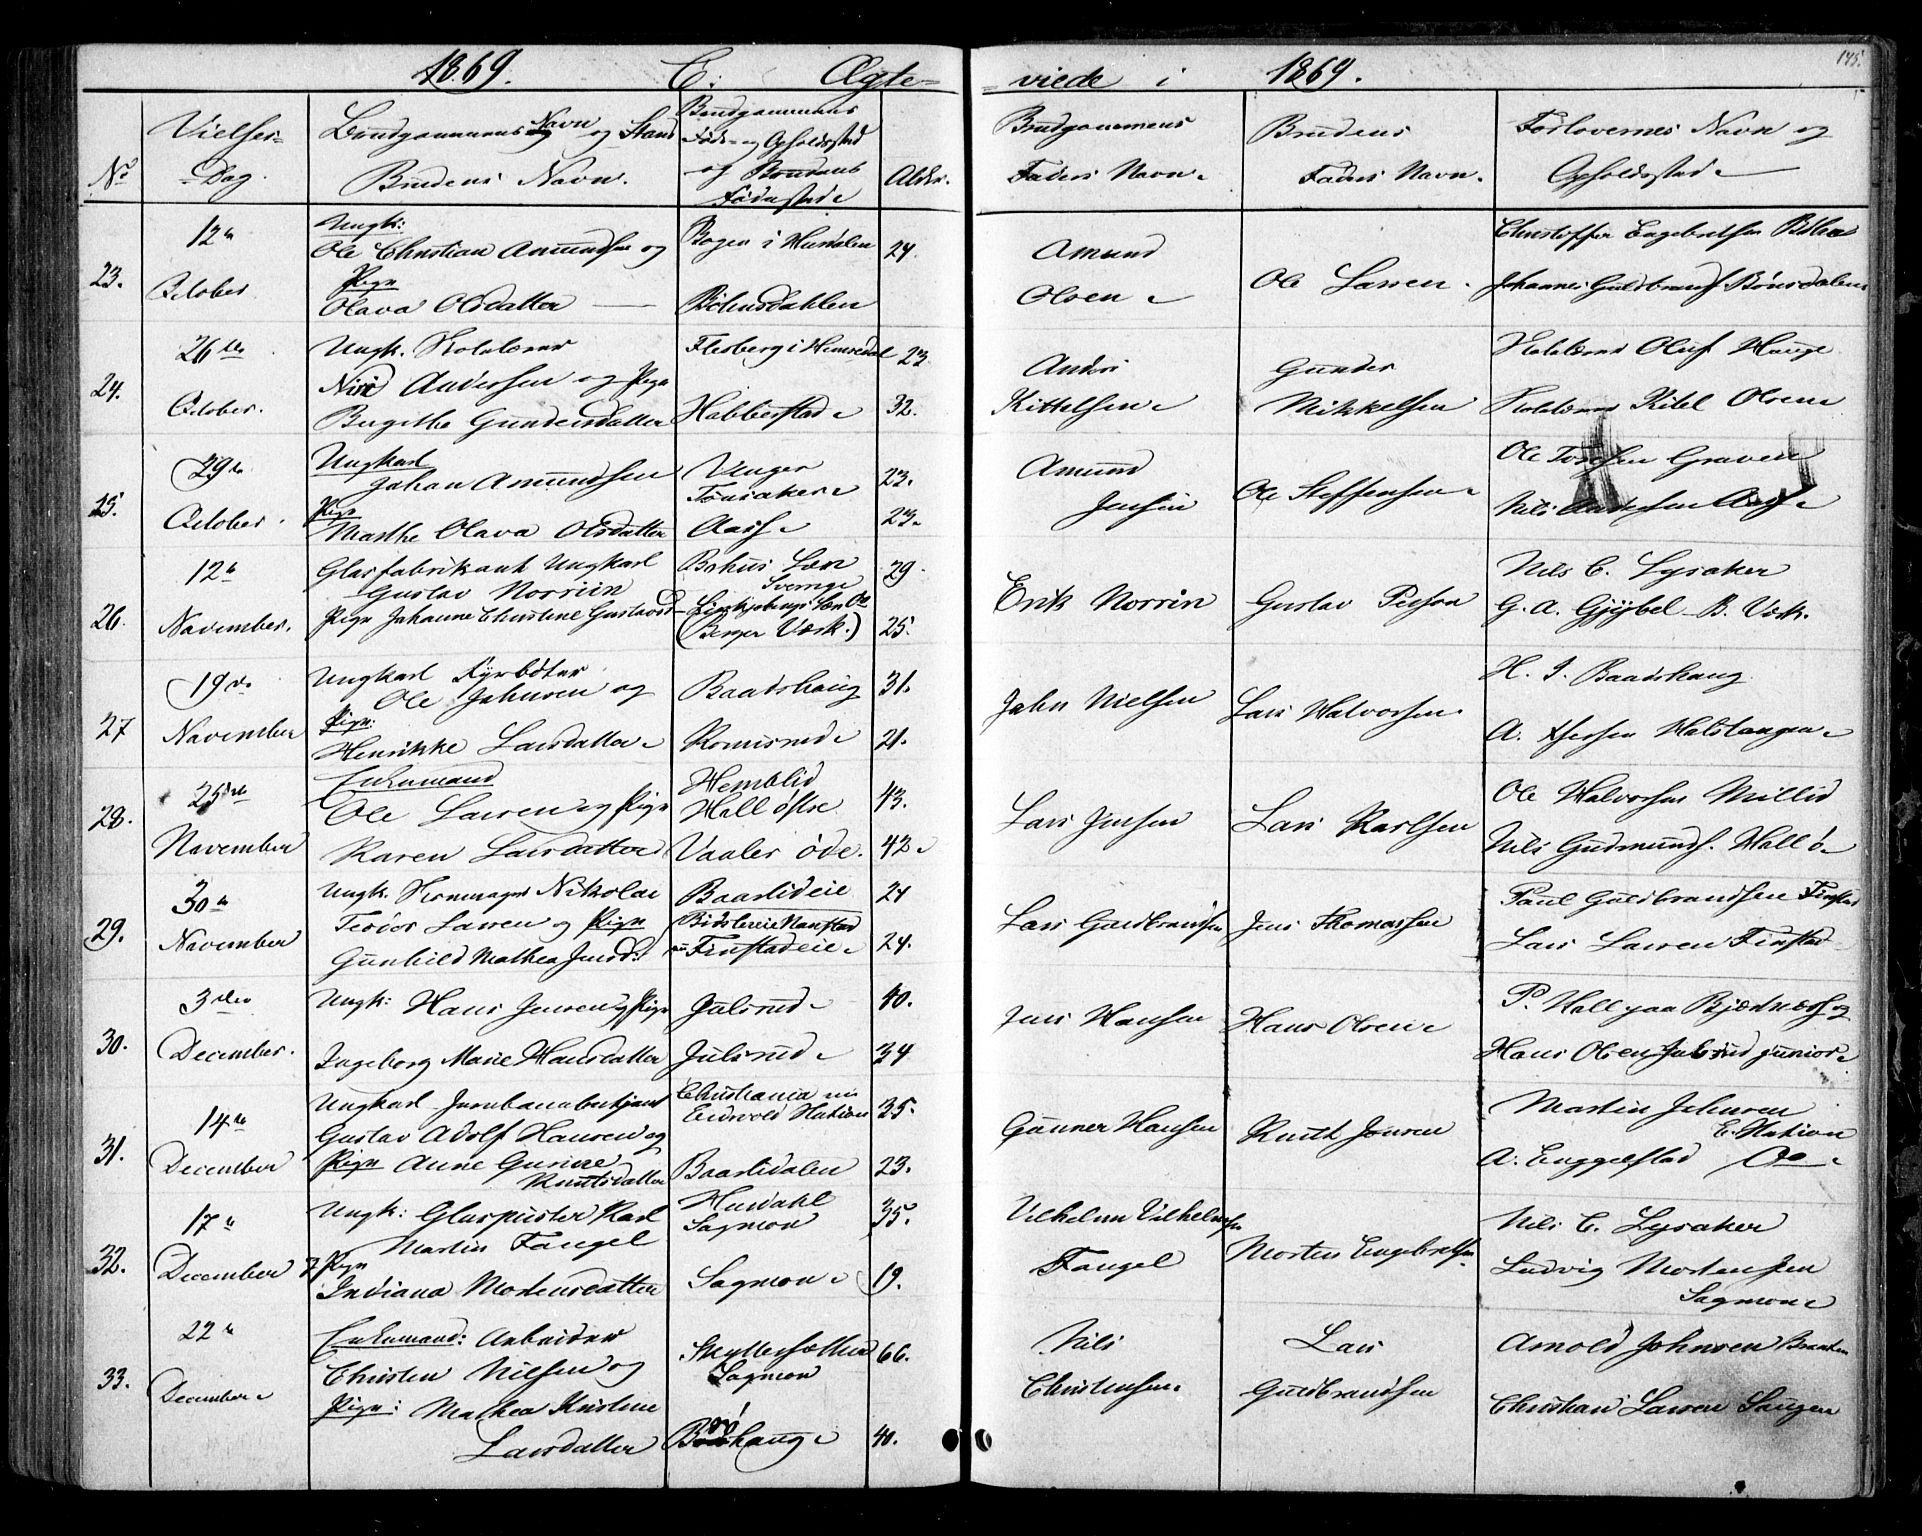 1869. C: Ægte-
viede i 1869.
145.
No
Vielses-
Dag.
Brudgommens Navn og Stand
Brudens Navn.
Brudgommens
Føde- og Opholdssted
og Brudens
Fødested
Alder.
Brudgommens
Faders Navn.
Brudens
Faders Navn.
Forlovernes Navn og
Opholdssted
23.
12te
October
Ungk:
Ole Christian Amundsen og
Pige
Olava Olsdatter
Bogen i Hurdalen
24.
Amund
Olsen
Ole Larsen.
Christoffer Engebretsen
Johannes Guldbrands.
24.
26de
October.
Ungk.
Andersen og Pige
Birgithe Gundersdatter
Flesberg i
23
Habberstad
32.
Anders
Kittelsen
Gunder
Mikkelsen
Oluf Hauge
Kitel Olsen
25.
29de
October.
Ungkarl
Johan Amundsen
Pige
Marthe Olava Olsdatter
Unger
23.
Aas
23.
Amund
Jensen
Ole Steffensen
Ole Graven
Nils Andersen
26.
12te
November.
Glasfabrikant Ungkarl
Gustav Norrén
Pige Johanne Christine Gustavsd
Bohus Læn
Sverige
29.
Linkjøbings Læn
(Berger Værk.)
25.
Erik Norrén
Gustav Person
Nils C. Lysaker
G. A. Gjybel B. Værk.
27
19de
November
Ungkarl Fyrbøter
Ole Johnsen og
Pige:
Henrikke Larsdatter
Baardshaug
31.
Romsrud
21.
John Nielsen
Lars Halvorsen
H. J. Baardshaug.
28.
25de
November
Enkemand
Ole Larsen og Pige
Karen Larsdatter
Hemblid
Hall østre
43.
Vaaler øde.
42
Lars Jensen
Lars Karlsen
Ole Halvorsen Millid
Nils Gudmunds. Hall ø
29.
30te
November
Ungk. Nikolai
Teodor Larsen og Pige
Gunhild Mathea Jensd:
Baarlideie
24
Finstadeie
24.
Lars Guldbrandsen
Jens Thomassen
Paul Guldbrandsen Finstad
Lars Larsen Finstad
30.
3die
December.
Ungk: Hans Jensen og Pige
Ingeborg Marie Hansdatter
Julsrud
40.
Julsrud
34
Jens Hansen
Hans Olsen
P. Hall paa og
Hans Olsen Julsrud junior
31.
14de
December
Ungkarl Jernbanebetjent
Gustav Adolf Hansen og
Pige Anne Gurine
Knutsdatter
Christiania nu
Eidsvold Station
35.
Baarlidalen
23.
Gunner Hansen
Knut Jonsen
Martin Johnsen
E. Station
32.
17de
December
Ungk: Glaspuster Karl
Martin Fangel
Pige
Indiana Mortensdatter
Hurdahl
Sagmon
35.
Sagmon
19.
Vilhelm Vilhelmsen
Fangel
Morten Engebretsen.
Nils C. Lysaker
Ludvig Mortensen
Sagmon
33.
22de
December
Enkemand: Arbeider
Christen Nilsen og
Pige: Mathea Kristine
Larsdatter
Sagmon
66.
40.
Nils
Christensen
Lars
Guldbrandsen
Arnold Johnsen
Christian Larsen Haugen